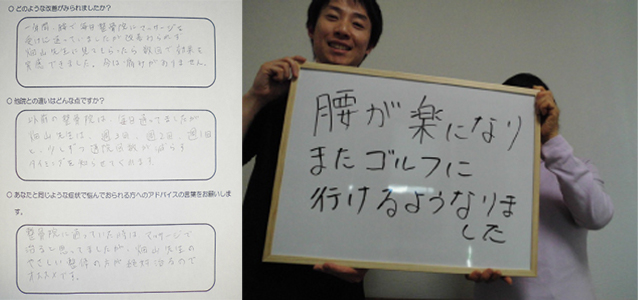 ○どのような改善がみられましたか？
一年前、腰で毎日整骨院にマッサージを
受けに通っていましたが改善みられず
畑山先生に見てもらったら数回で効果を
実感できました。今は痛みがありません。
○他院との違いはどんな点ですか？
以前の整骨院は、毎日通ってましたが
畑山先生は、週3回、週2回、週1回
と少しずつ通院回数が減らす
タイミングを知らせてくれます
○あなたと同じような症状で悩んでおられる方へのアドバイスの言葉をお願いしま
す。
整骨院に通っていた時はマッサージで
治ると思ってましたが、畑山先生の
やさしい整体の方が絶対治るので
オススメです。
腰が楽になり
またゴルフに
行けるようなりま
した